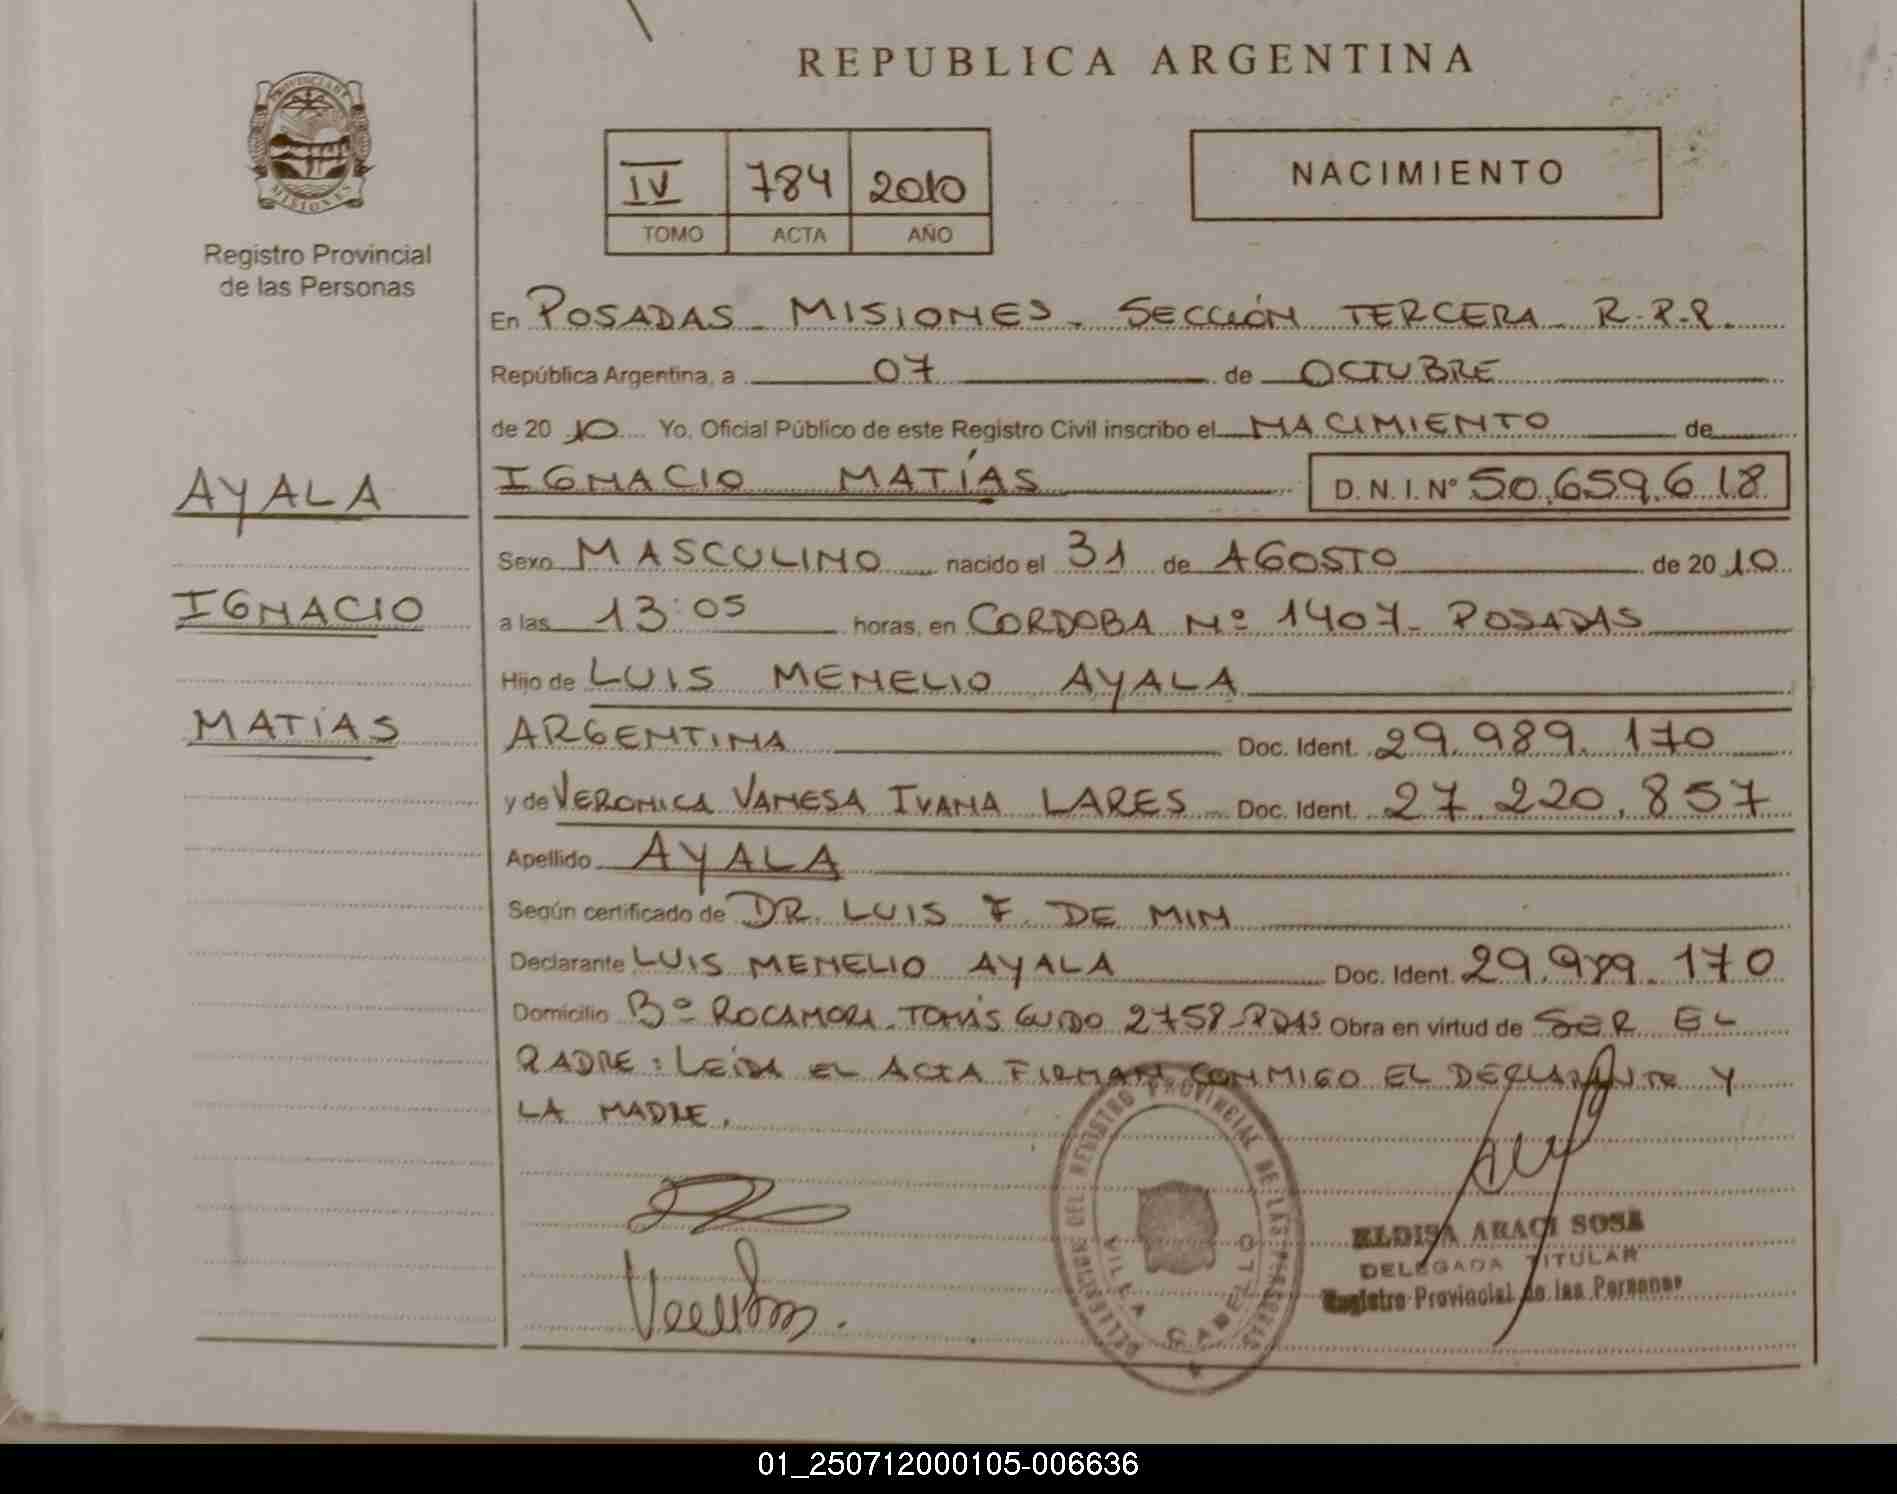 REPUBLICA ARGENTINA
PROVINCIA DE MISIONES
Registro Provincial
de las Personas
IV 784 2010
TOMO ACTA AÑO
NACIMIENTO
En POSADAS - MISIONES - SECCIÓN TERCERA - R.P.P.
República Argentina, a 07 de OCTUBRE
de 2010 Yo, Oficial Público de este Registro Civil inscribo el NACIMIENTO de
IGNACIO MATÍAS D.N.I. Nº 50.659.618
AYALA
Sexo MASCULINO nacido el 31 de AGOSTO de 2010
IGNACIO
a las 13:05 horas, en CORDOBA Nº 1407 - POSADAS
Hijo de LUIS MENELIO AYALA
MATÍAS
ARGENTINA Doc. Ident. 29.989.170
y de VERONICA VANESA IVANA LARES Doc. Ident. 27.220.857
Apellido AYALA
Según certificado de DR. LUIS F. DE MIN
Declarante LUIS MENELIO AYALA Doc. Ident. 29.989.170
Domicilio Bº ROCAMORA - TOMÁS GUIDO 2758 - PDAS Obra en virtud de SER EL
PADRE: LEÍDA EL ACTA FIRMAN CONMIGO EL DECLARANTE Y
LA MADRE.
DELEGACION DEL REGISTRO PROVINCIAL DE LAS PERSONAS
VILLA CABELLO
ELDISA ARACI SOSA
DELEGADA TITULAR
Registro Provincial de las Personas
01_250712000105-006636